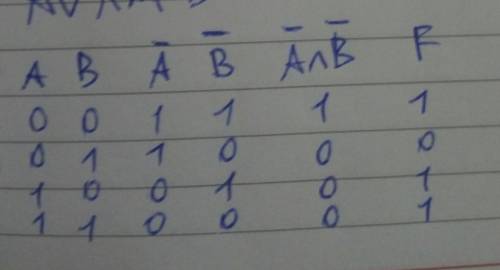 A B A̅ B̅ A̅∧B̅ F
0 0 1 1 1 1
0 1 1 0 0 0
1 0 0 1 0 1
1 1 0 0 0 1